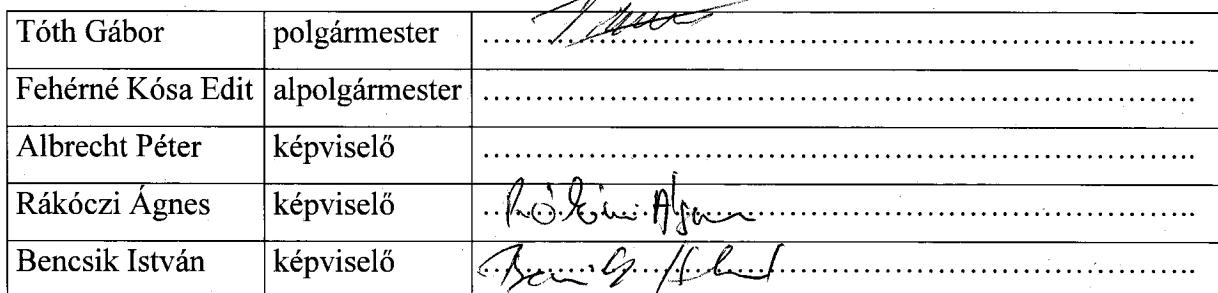 Tóth Gábor polgármester ................................................
Fehérné Kósa Edit alpolgármester ................................................
Albrecht Péter képviselő ................................................
Rákóczi Ágnes képviselő ................................................
Bencsik István képviselő ................................................